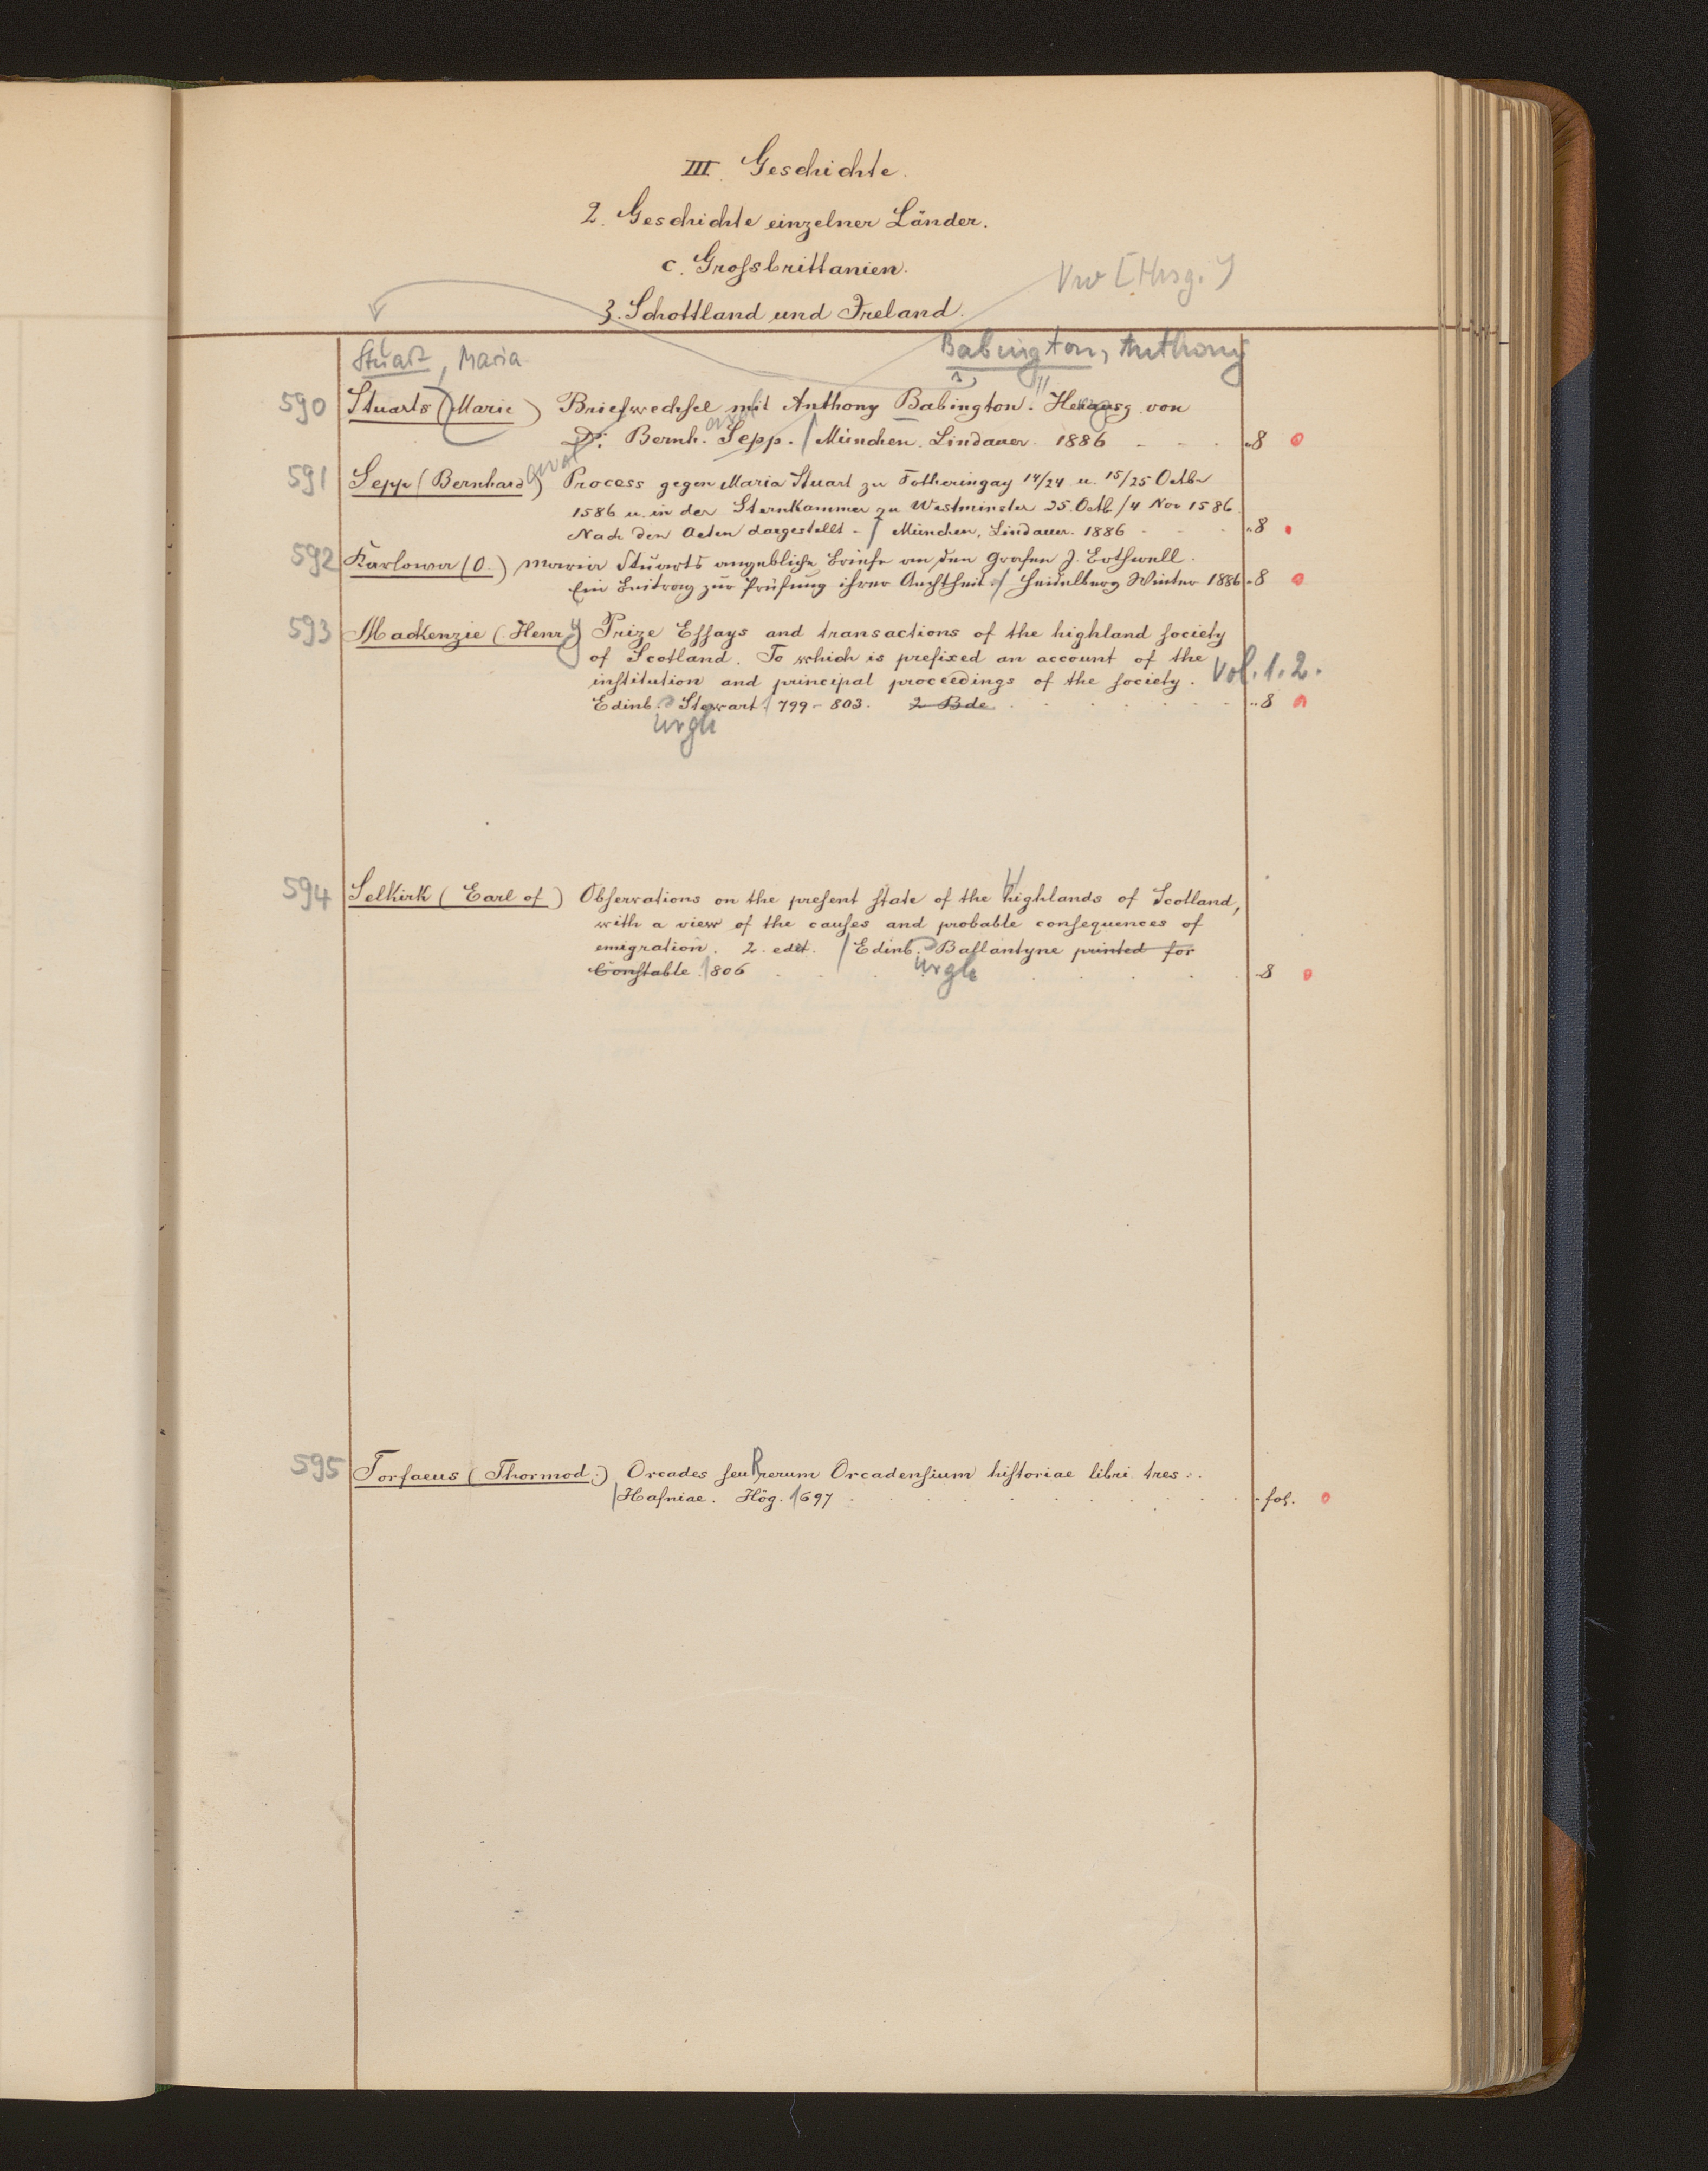 III. Geschichte.
2. Geschichte einzelner Länder.
c. Grofsbrittanien.
Vw [Hrsg.]
3. Schottland und Ireland.
Stuart, Maria
Babington, Anthony
590 Stuarts (Marie) Briefwechsel mit Anthony Babington. Herausg von
Dr. Bernh. Sepp. / München. Lindauer. 1886 - - - 8
591 Sepp (Bernhard) Process gegen Maria Stuart zu Fotheringay 14/24 u. 15/25 Octbr
1586 u. in der Sternkammer zu Westminster 25. Octb / 4 Nov 1586.
Nach den Acten dargestellt. - / München, Lindauer. 1886 - - - 8
592 Karlowa (O.) Maria Stuarts angebliche Briefe an den Grafen J. Bothwell.
Ein Beitrag zur Prüfung ihrer Aechtheit. / Heidelberg Winter 1886 - 8
593 Mackenzie (Henry) Prize Efsays and transactions of the highland society
of Scotland. To which is prefixed an account of the
institution and principal proceedings of the society. Vol. 1. 2.
Edinb. Stewart 1799-803. 2 Bde. 8
urgh
594 Selkirk (Earl of) Observations on the present state of the Highlands of Scotland,
with a view of the causes and probable consequences of
emigration. 2. edit. / Edinb. Ballantyne printed for
urgh
Constable. 1806 - 8
595 Torfaeus (Thormod.) Orcades seu Rerum Orcadensium historiae libri tres.
/ Hafniae. Hög. 1697 - fol.